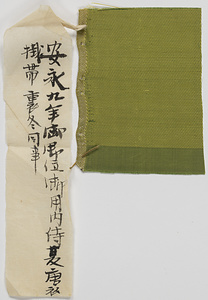 安永九年御即位御用内侍夏唐衣
掛帯 裏冬同事